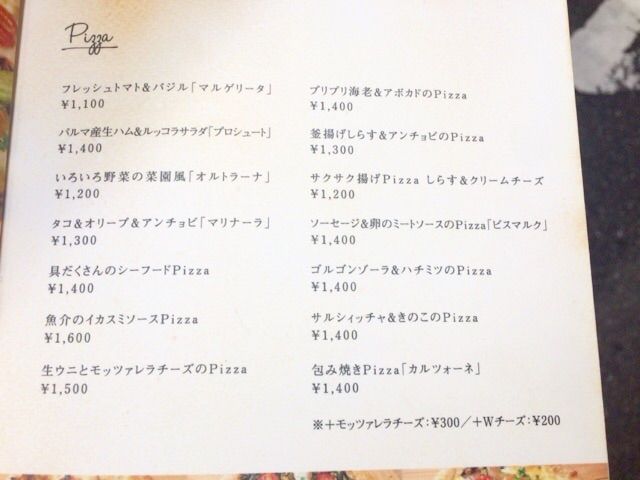 Pizza
フレッシュトマト&バジル「マルゲリータ」
¥1,100
パルマ産生ハム&ルッコラサラダ「プロシュート」
¥1,400
いろいろ野菜の菜園風「オルトラーナ」
¥1,200
タコ&オリーブ&アンチョビ「マリナーラ」
¥1,300
具だくさんのシーフードPizza
¥1,400
魚介のイカスミソースPizza
¥1,600
生ウニとモッツァレラチーズのPizza
¥1,500
プリプリ海老&アボカドのPizza
¥1,400
釜揚げしらす&アンチョビのPizza
¥1,300
サクサク揚げPizza しらす&クリームチーズ
¥1,200
ソーセージ&卵のミートソースのPizza「ビスマルク」
¥1,400
ゴルゴンゾーラ&ハチミツのPizza
¥1,400
サルシィッチャ&きのこのPizza
¥1,400
包み焼きPizza「カルツォーネ」
¥1,400
※+モッツァレラチーズ:¥300/+Wチーズ:¥200